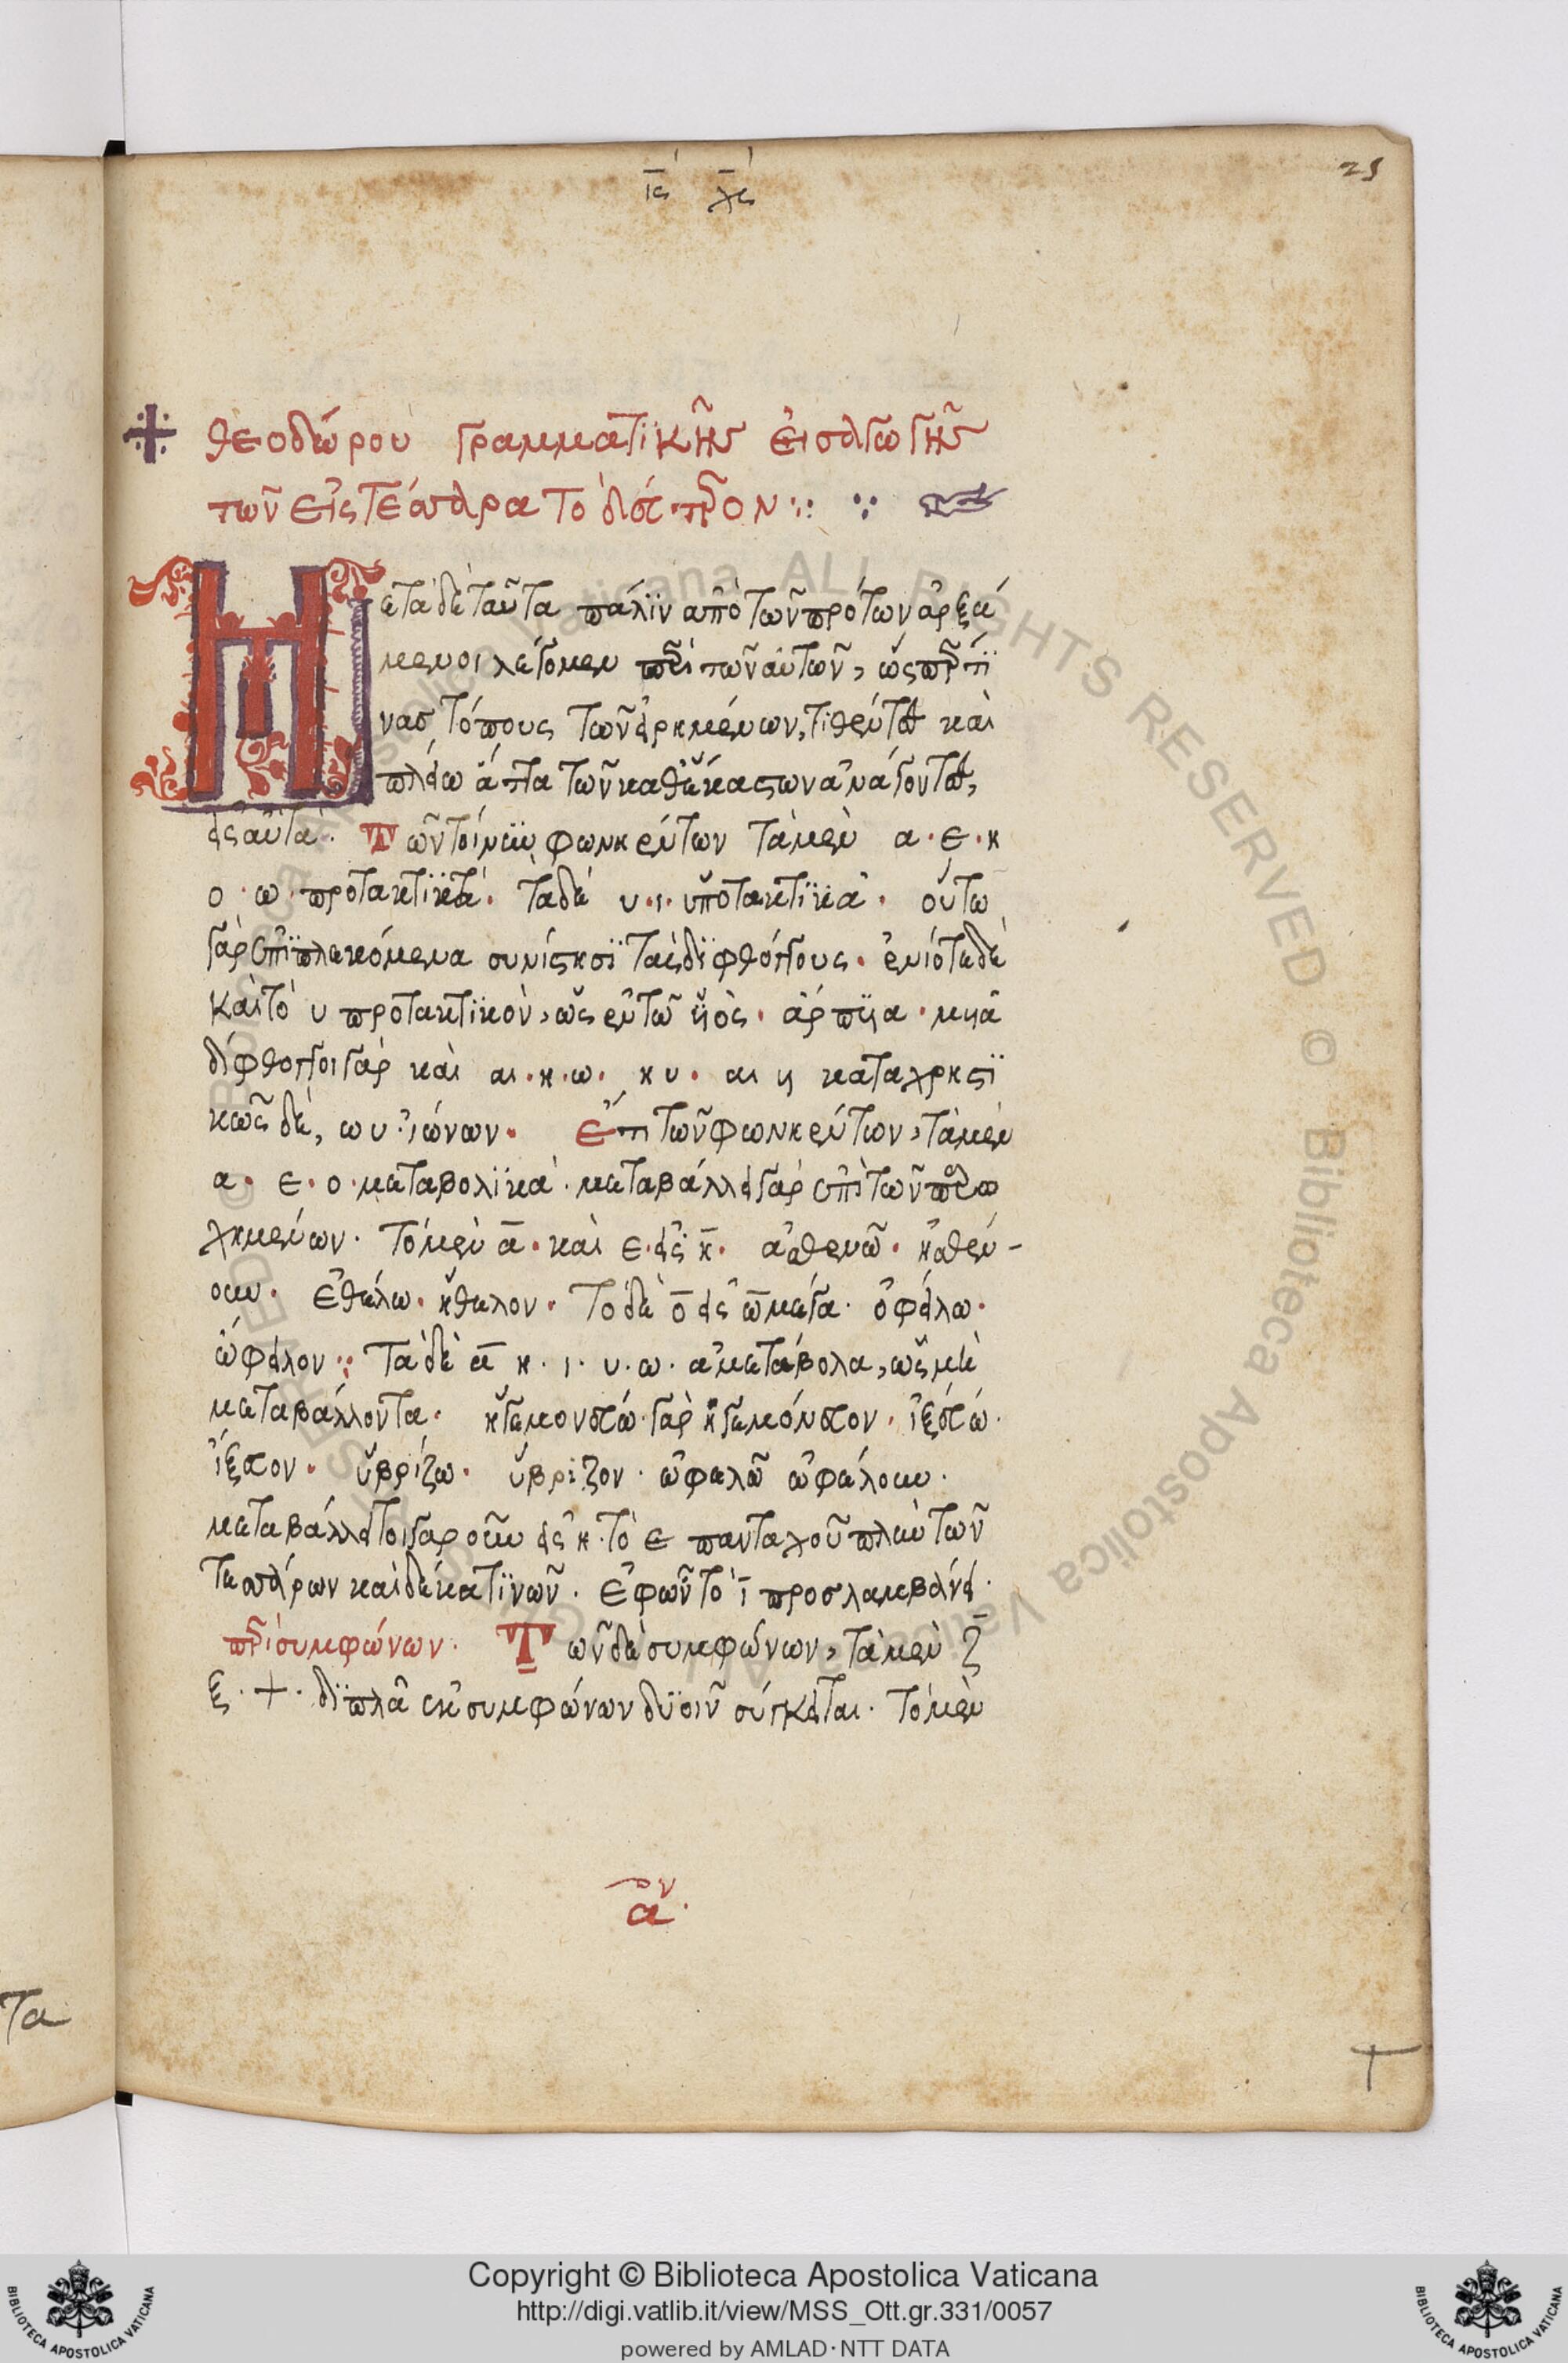 ις χς
25
θεοδώρου γραμματϊκῆς εἰσαγωγῆς
τῶν εἰς τέσσαρα τὸ δεύτερον
Μετὰ δὲ ταῦτα πάλϊν ἀπὸ τῶν πρότων ἀρξά
μενοι λέγομεν περὶ τῶν αὐτῶν, ὡς περὶ τϊ
νας τόπους τῶν εἰρημένων, τιθέντες καὶ
πλείω ἅττα τῶν καθέκαστων ἀνάγοντες,
εἰς αὐτά. Τῶν τοίνυν φωνηέντων τὰ μὲν α · ε · η
ο · ω · προτακτϊκὰ. τὰ δέ υ · ι · ὑποτακτϊκὰ · οὕτω
γὰρ ἐπϊπλεκόμενα συνίστησϊ τὰς δϊφθόγγους · ἐνίοτε δὲ
καὶ τὸ υ προτακτϊκὸν, ὡς ἐν τῶ υἱὸς · ἅρπυια · μυῖα
δίφθογγοι γὰρ καὶ αι · η · ω · ηυ · αι υι καταχρηστϊ
κῶς δέ, ωυ ἰώνων · Ἔτι τῶν φωνηέντων, τὰ μὲν
α · ε · ο · μεταβολϊκὰ · μεταβάλλει γὰρ ἐπὶ τῶν παρω
χημένων · τὸ μὲν α · καὶ ε · εἰς η · ἀσθενῶ · ἠσθέν-
ουν · ἐθέλω · ἤθελον · τὸ δὲ ο εἰς ω μέγα · ὀφείλω ·
ὤφειλον : τὰ δὲ α η · ι · υ · ω · ἀμετάβολα, ὡς μὴ
μεταβάλλοντα · ἡγεμονεύω γὰρ ἡγεμόνευον · ἰξεύω ·
ἴξευον · ὑβρίζω · ὕβριζον · ὠφελῶ ὠφέλουν ·
μεταβάλλει τοιγαροῦν εἰς η · τὸ ε πανταχοῦ πλὴν τῶν
τεσσάρων καὶ δέκα τϊνῶν · ἐφ ὧν τὸ ι προσλαμβάνει ·
περὶ συμφώνων · Τῶν δὲ συμφώνων, τὰ μὲν ζ
ξ · ψ · δϊπλᾶ ἐκ συμφώνων δυοῖν σύγκειται · τὸ μὲν
τα
Copyright © Biblioteca Apostolica Vaticana
http://digi.vatlib.it/view/MSS_Ott.gr.331/0057
powered by AMLAD·NTT DATA
BIBLIOTECA APOSTOLICA VATICANA
BIBLIOTECA APOSTOLICA VATICANA